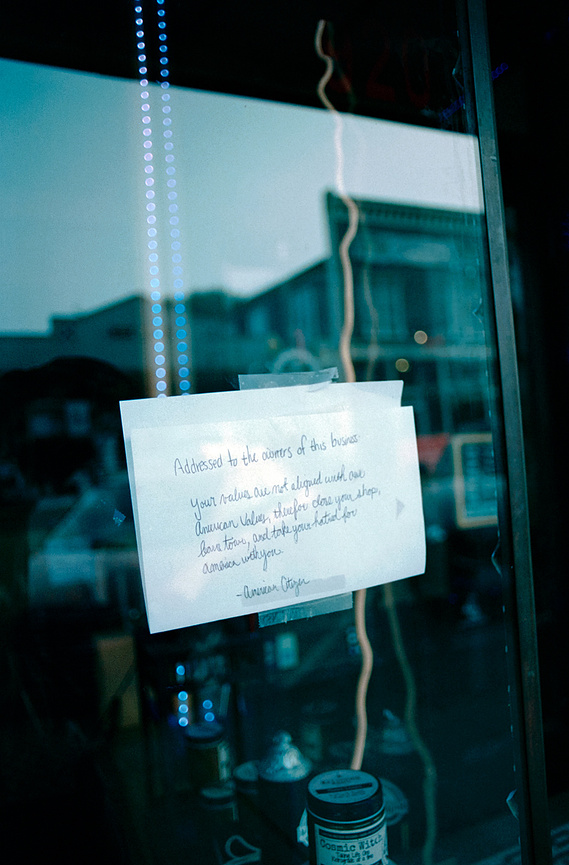 Addressed to the owners of this business:
your values are not aligned with our
American Values, therfor close your shop,
leave town, and take your hatred for
america with you.
- American Citizen
Cosmic Witch